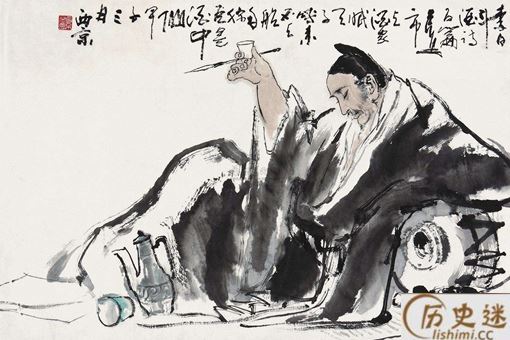 李白
斗
酒诗
百篇
長安
市
上
酒家
眠
天
子
呼来
不上
船
自
称
臣是
酒中
仙
甲子三月
西京
历史迷
lishimi.cc